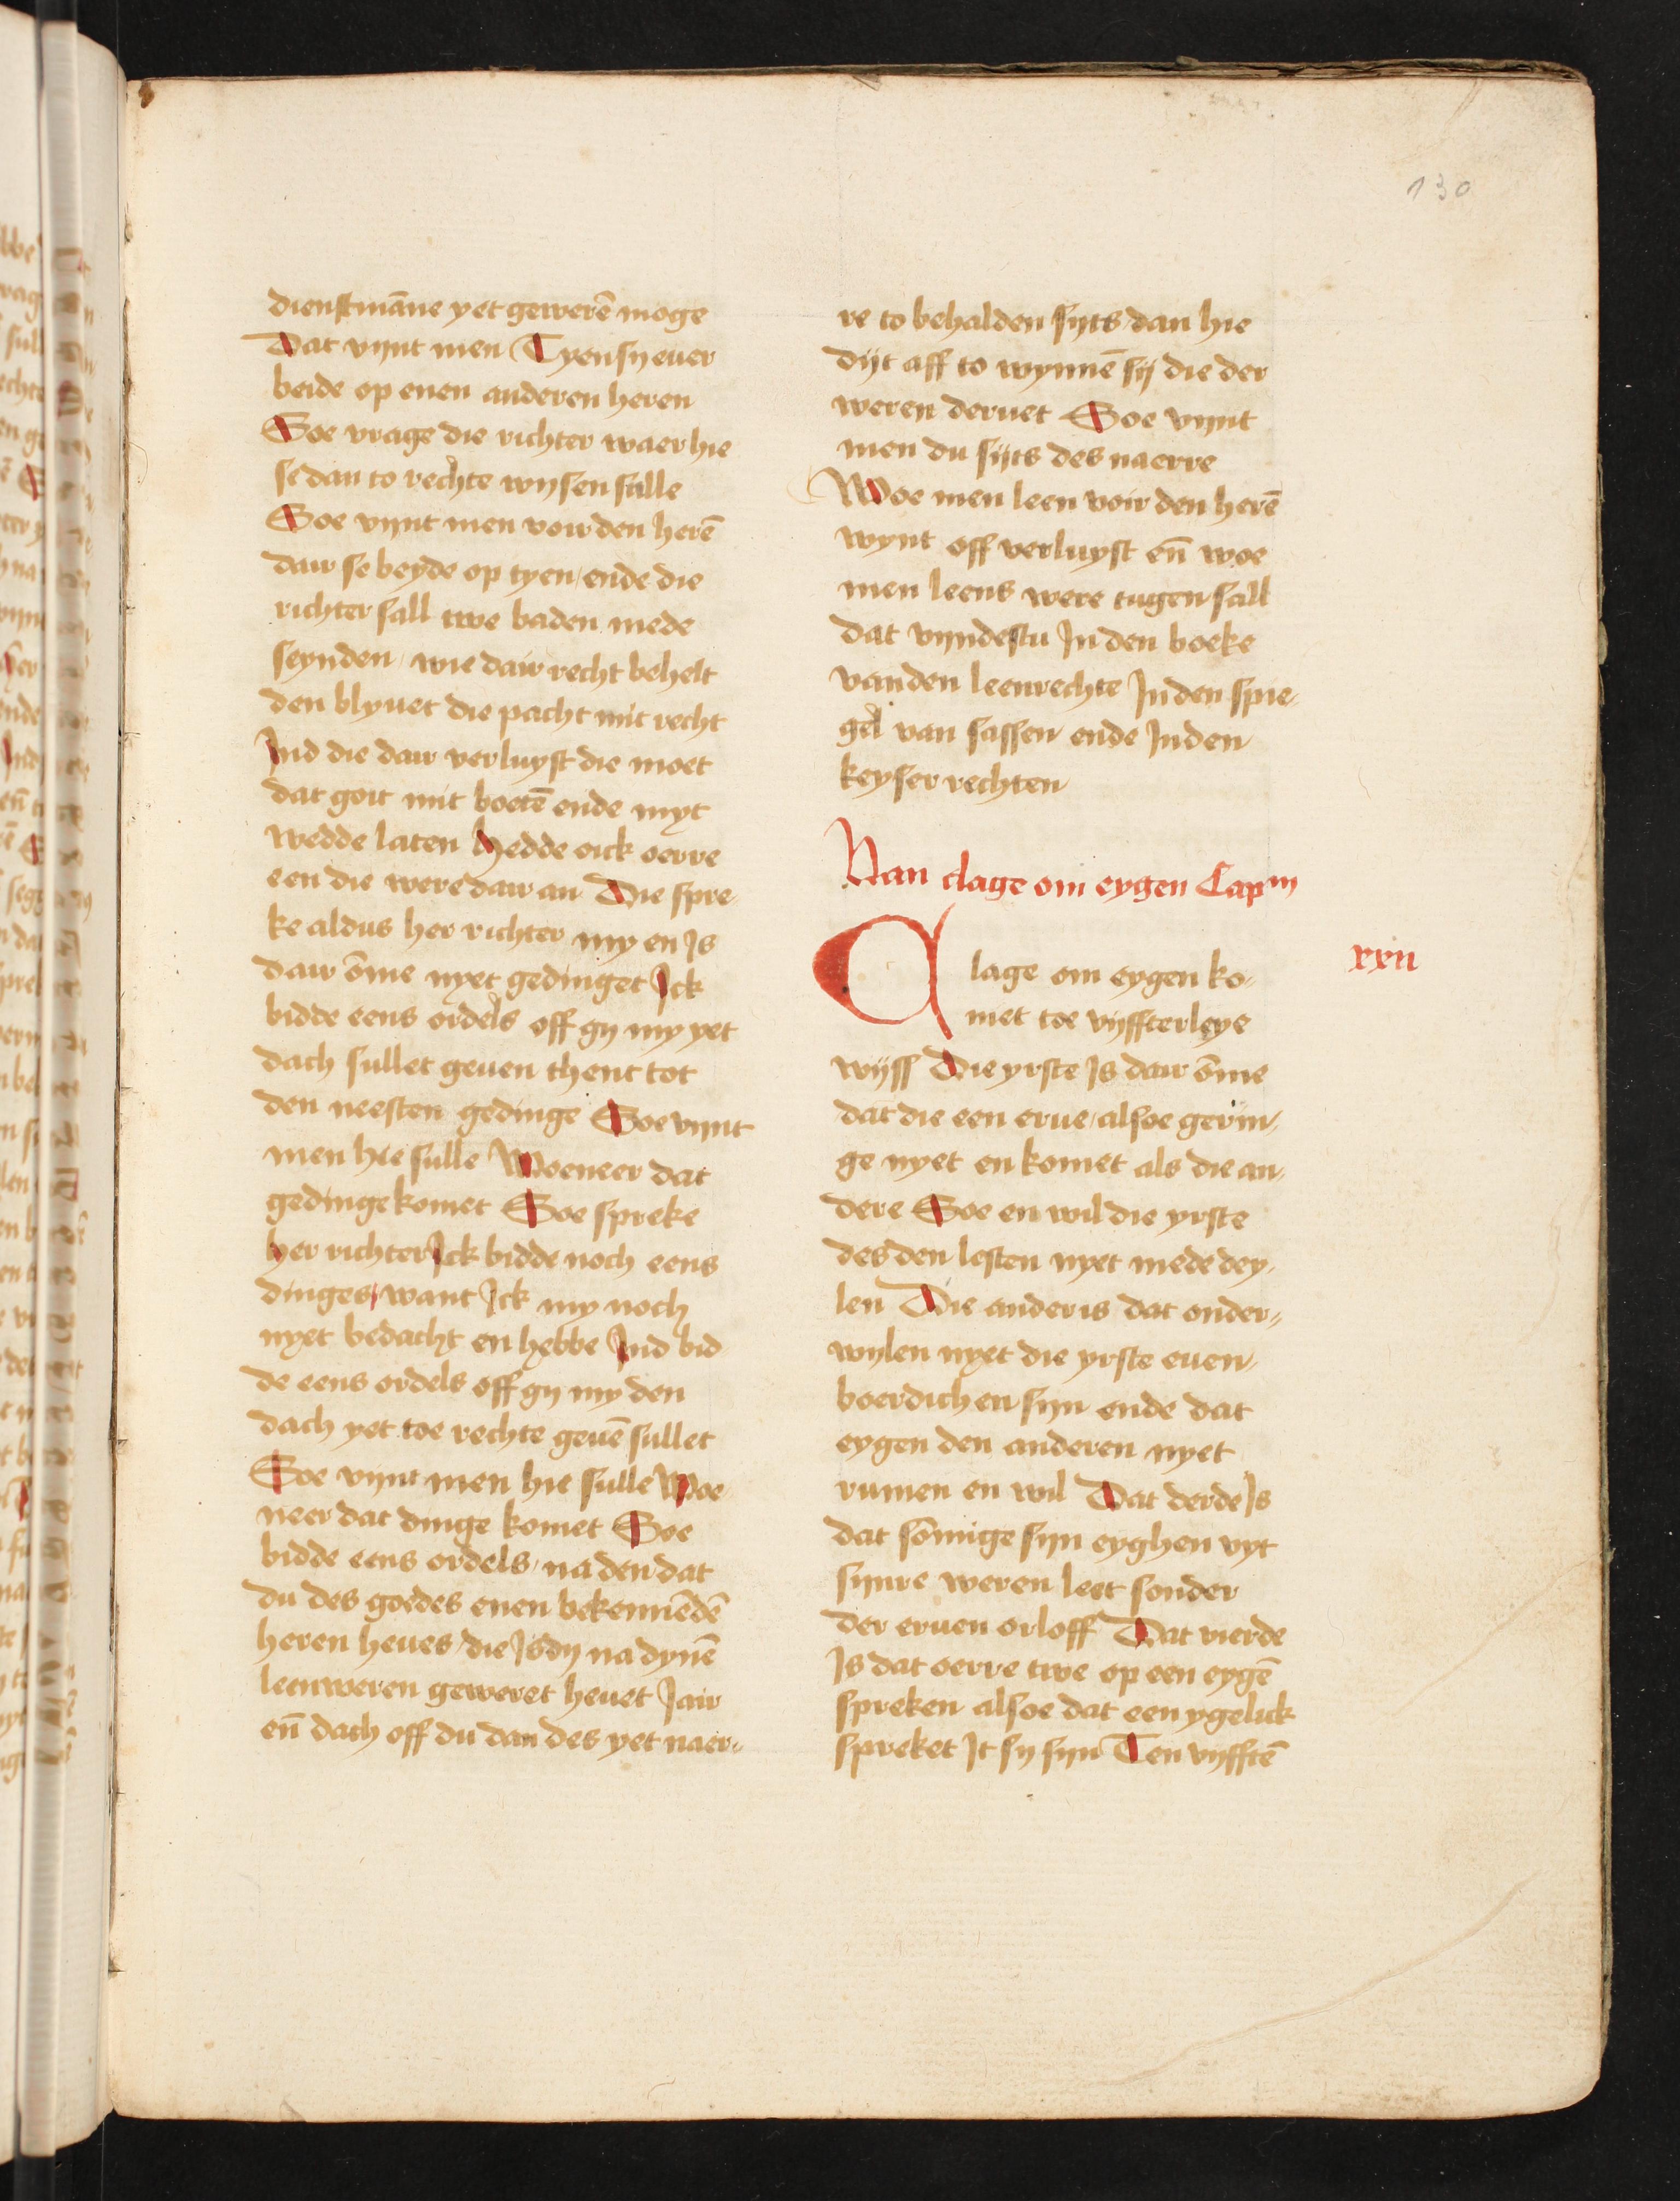 130
dienstmāne yet gewerē moge
Dat vynt men Tyen sy euer
beide op enen anderen heren
Soe vrage die richter waer hie
se dan to rechte wysen sulle
Soe vynt men voir den herē
dair se beyde op tyen / ende die
richter sall twe baden mede
seynden / wie dair recht behelt
den blyuet die pacht mit recht
Ind die dair verluyst die moet
dat goit mit boetē ende myt
wedde laten hedde oick oerre
een die were dair an Die spre
ke aldus her richter my en Is
dair ōme nyet gedinget Ick
bidde eens ordels off gy my yet
dach sullet geuen thent tot
den neesten gedinge Soe vynt
men hie sulle Woeneer dat
gedinge komet Soe spreke
her richter Ick bidde noch eens
dinges / want Ick my noch
nyet bedacht en hebbe Ind bid
de eens ordels off gy my den
dach yet toe rechte geuē sullet
Soe vynt men hie sulle Woe
neer dat dinge komet Soe
bidde eens ordels / na den dat
du des goedes enen bekennēdē
heren heues / die Is dy na dynē
leenweren geweret heuet Jair
eñ dach off du dan des yet naer-
re to behalden syts / dan hie
dyt aff to wynnē sij die der
weren deruet Soe vynt
men du syts des naerre
Woe men leen voir den herē
wynt off verluyst eñ woe
men leens were tugen sall
dat vyndestu In den boeke
vanden leenrechte In den spie-
gel van sassen ende In den
keyser rechten
Van clage om eygen Capm
xxii
Clage om eygen ko-
met toe vyffterleye
wijss Die yrste Is dair ōme
dat die een erue / alsoe gerin-
ge nyet en komet als die an-
dere Soe en wil die yrste
des den lesten nyet mede dey-
len Die ander is dat onder-
wylen nyet die yrste euen-
boerdich en syn ende dat
eygen den anderen nyet
rumen en wil Dat derde Is
dat sōmige syn eyghen vyt
synre weren leet sonder
der eruen orloff Dat vierde
Is dat oerre twe op een eygē
spreken alsoe dat een ygelick
spreket It sy syn Ten vyfftē